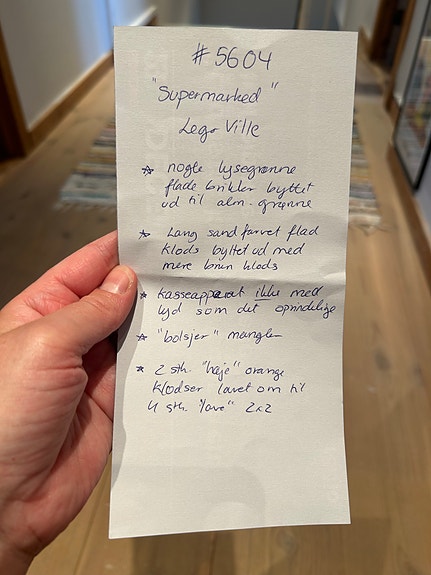 #5604
"Supermarked"
Lego Ville
* nogle lysegrønne
flade brikker byttet
ud til alm. grønne
* Lang sandfarvet flad
klods byttet ud med
mere brun klods
* kasseapparat ikke med
lyd som det oprindelige
* "bolsjer" mangler
* 2 stk. "høje" orange
klodser lavet om til
4 stk. "lave" 2x2